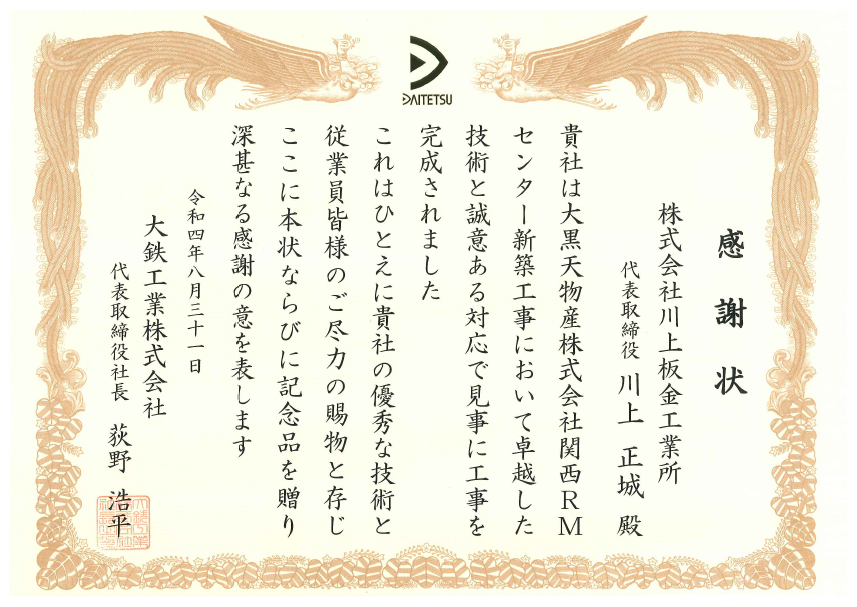 DAITETSU
感謝状
株式会社川上板金工業所
代表取締役 川上 正城 殿
貴社は大黒天物産株式会社関西RM
センター新築工事において卓越した
技術と誠意ある対応で見事に工事を
完成されました
これはひとえに貴社の優秀な技術と
従業員皆様のご尽力の賜物と存じ
ここに本状ならびに記念品を贈り
深甚なる感謝の意を表します
令和四年八月三十一日
大鉄工業株式会社
代表取締役社長 荻野 浩平